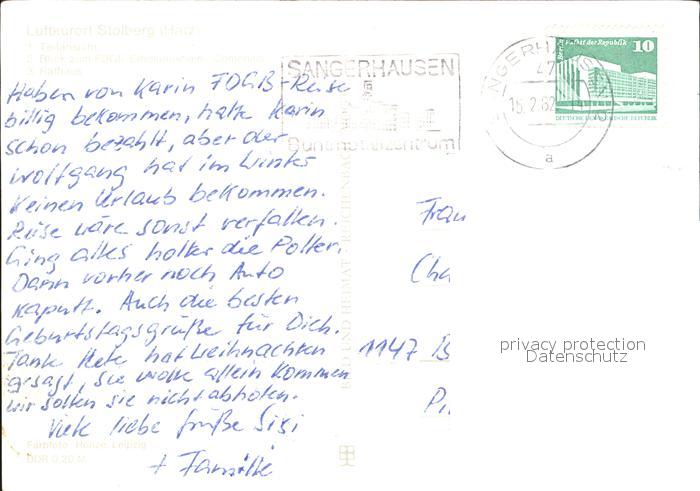 Luftkurort Stolberg (Harz)
1. Teilansicht
2. Blick zum FDGB-Erholungsheim "Comenius"
3. Rathaus
Haben von Karin FDGB-Reise
billig bekommen, hatte Karin
schon bezahlt, aber der
Wolfgang hat im Winter
keinen Urlaub bekommen.
Reise wäre sonst verfallen.
Ging alles holter die Polter.
Dann vorher noch Auto
kaputt. Auch die besten
Geburtstagsgrüße für Dich.
Tante Hete hat Weihnachten
gesagt, sie wolle allein kommen
wir sollen sie nicht abholen.
Viele liebe Grüße Sisi
+ Familie
Farbfoto: Hänze, Leipzig
DDR 0,20 M
BILD UND HEIMAT REICHENBACH
SANGERHAUSEN
Buntmetallzentrum
SANGERHAUSEN
47
15.2.82
a
Palast der Republik
10
DEUTSCHE DEMOKRATISCHE REPUBLIK
Frau
Cha
1147 B
privacy protection
Datenschutz